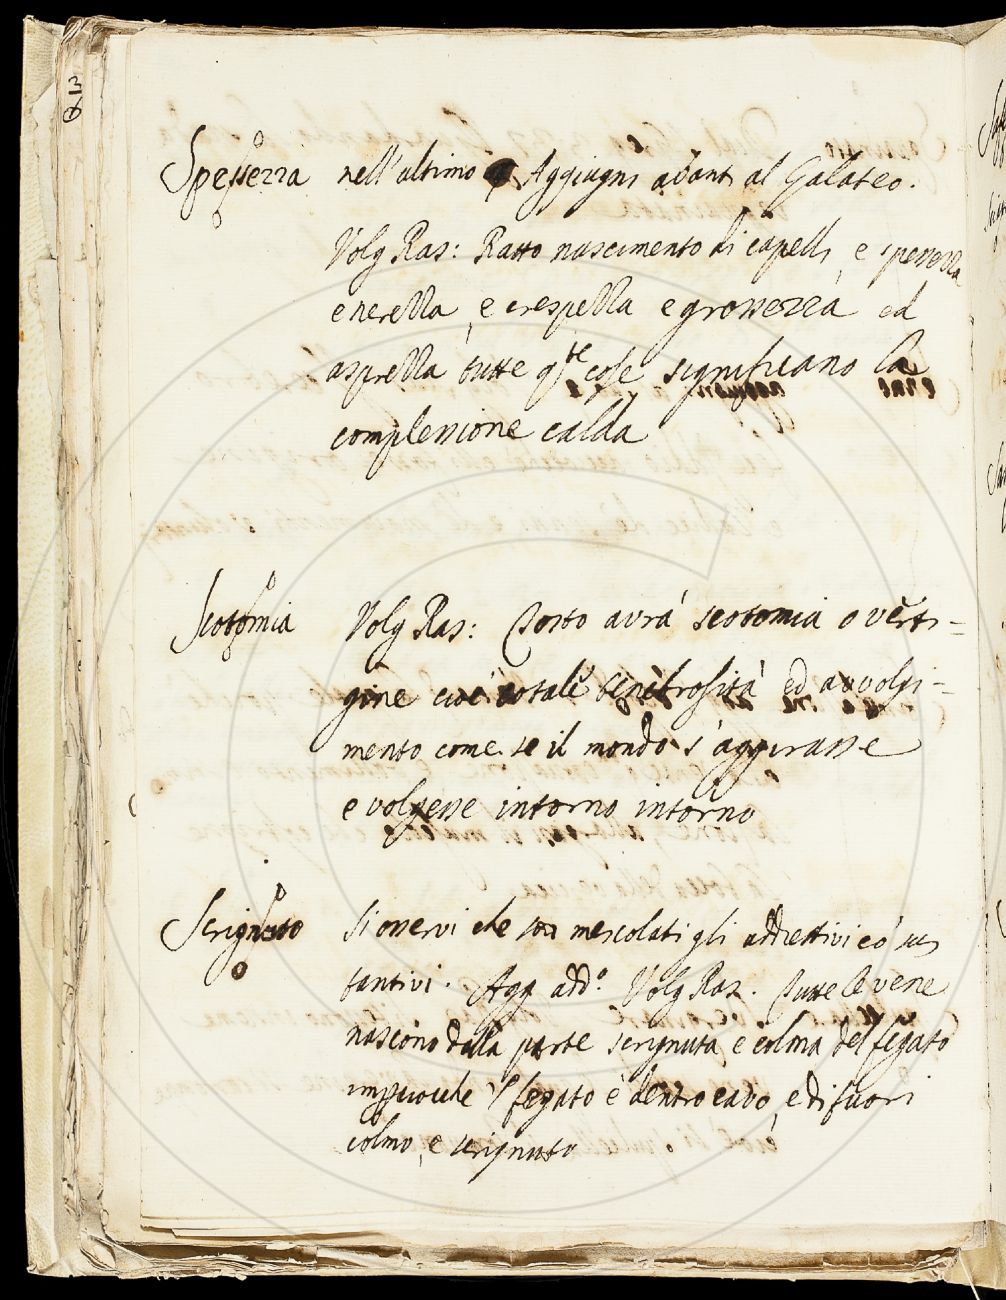 36
Spessezza nell'ultimo § Aggiugni avanti al Galateo.
Volg Ras: Ratto nascimento di capelli, e spessezza
e nerezza, e crespezza e grossezza ed
asprezza tutte q.te cose significano la
complessione calda
Scotomia Volg Ras: Tosto avrà scotomia o verti=
gine cioè cotale tenebrosità ed avvolgi=
mento come se il mondo s'aggirasse
e volgesse intorno intorno
Scrignuto Si osservi che son mescolati gli addiettivi co' sus
tantivi. Agg add.o Volg Ras. Tutte le vene
nascono dalla parte scrignuta e colma del fegato
impciocche 'l fegato è dentro cavo, e di fuori
colmo, e scrignuto